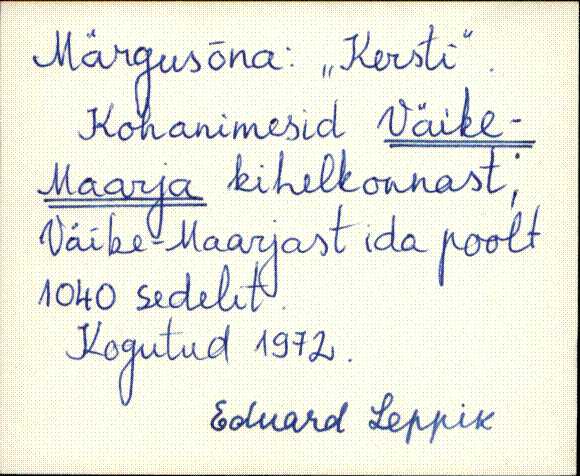 Märgusõna: „Kersti“.
Kohanimesid Väike-
Maarja kihelkonnast;
Väike-Maarjast ida poolt
1040 sedelit.
Kogutud 1972.
Eduard Leppik